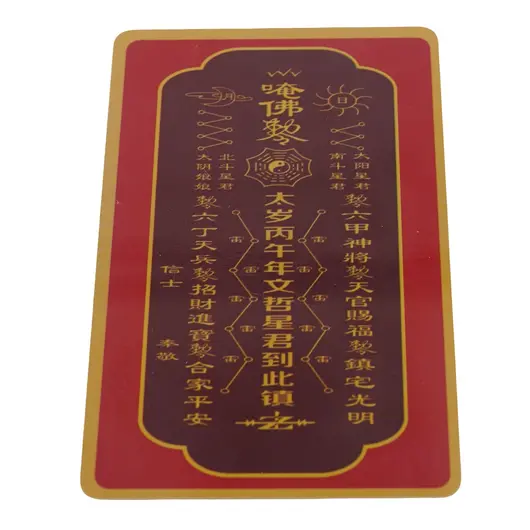 日
太阳星君
南斗星君
敕令六甲神將敕令天官賜福敕令鎮宅光明
雷雷雷雷雷
唵佛敕令
太岁丙午年文哲星君到此镇
雷雷雷雷雷
月
北斗星君
太阴娘娘
敕令六丁天兵敕令招財進寶敕令合家平安
信士
奉敬